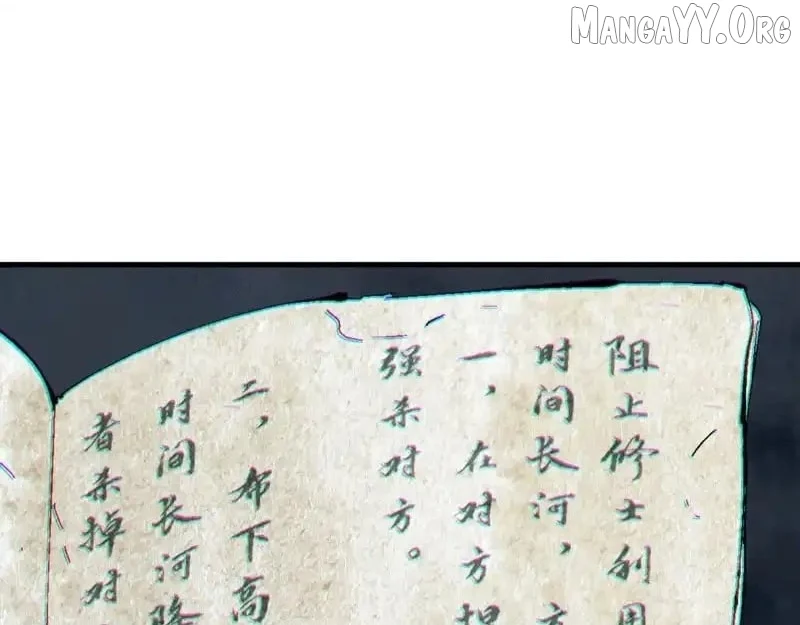 MANGAYY.ORG
阻止修士利用
时间长河，方
一，在对方提
强杀对方。
二，布下高
时间长河降
者杀掉对